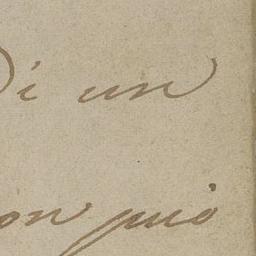 Di un
non può